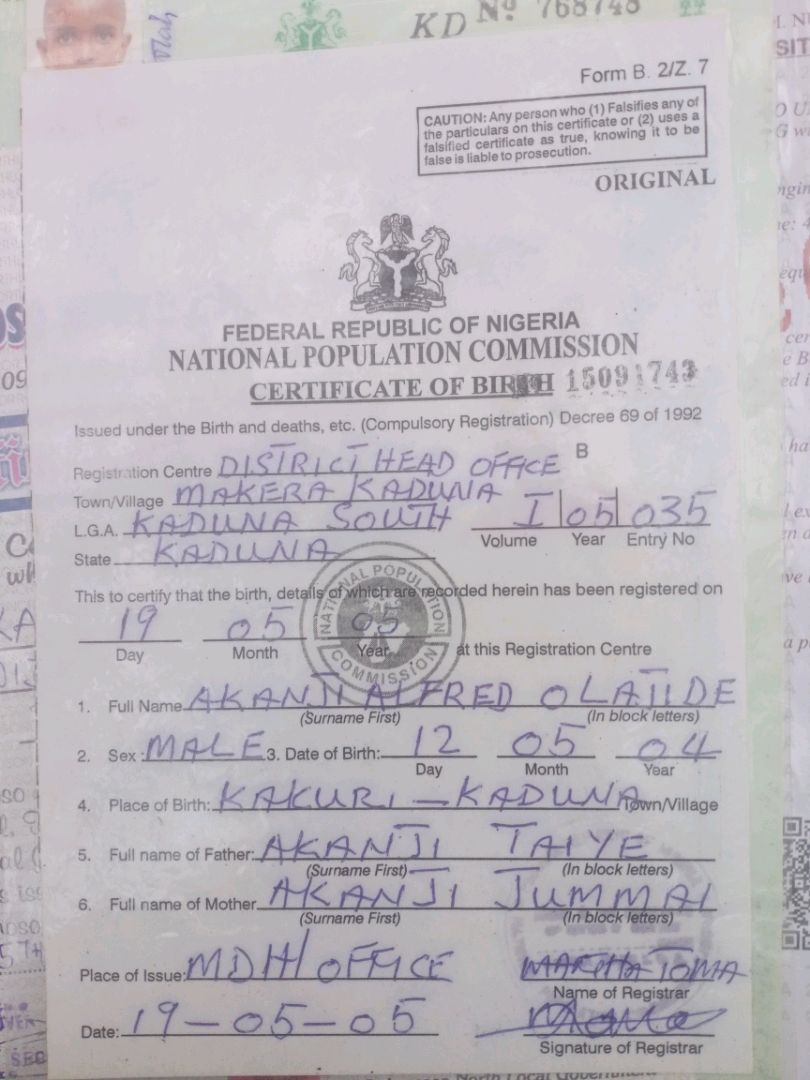 KD Nº 768748
Form B. 2/Z. 7
CAUTION: Any person who (1) Falsifies any of
the particulars on this certificate or (2) uses a
falsified certificate as true, knowing it to be
false is liable to prosecution.
ORIGINAL
FEDERAL REPUBLIC OF NIGERIA
NATIONAL POPULATION COMMISSION
CERTIFICATE OF BIRTH 15091743
Issued under the Birth and deaths, etc. (Compulsory Registration) Decree 69 of 1992
Registration Centre DISTRICT HEAD OFFICE B
Town/Village MAKERA KADUNA
L.G.A. KADUNA SOUTH I 05 035
Volume Year Entry No
State KADUNA
This to certify that the birth, details of which are recorded herein has been registered on
19 05 05
Day Month Year at this Registration Centre
NATIONAL POPULATION COMMISSION
1. Full Name AKANJI ALFRED OLATIDE
(Surname First) (In block letters)
2. Sex: MALE 3. Date of Birth: 12 05 04
Day Month Year
4. Place of Birth: KAKURI - KADUNA Town/Village
5. Full name of Father: AKANJI TAIYE
(Surname First) (In block letters)
6. Full name of Mother AKANJI JUMMAI
(Surname First) (In block letters)
Place of Issue: MDH OFFICE MARTHA TOMA
Name of Registrar
Date: 19-05-05
Signature of Registrar